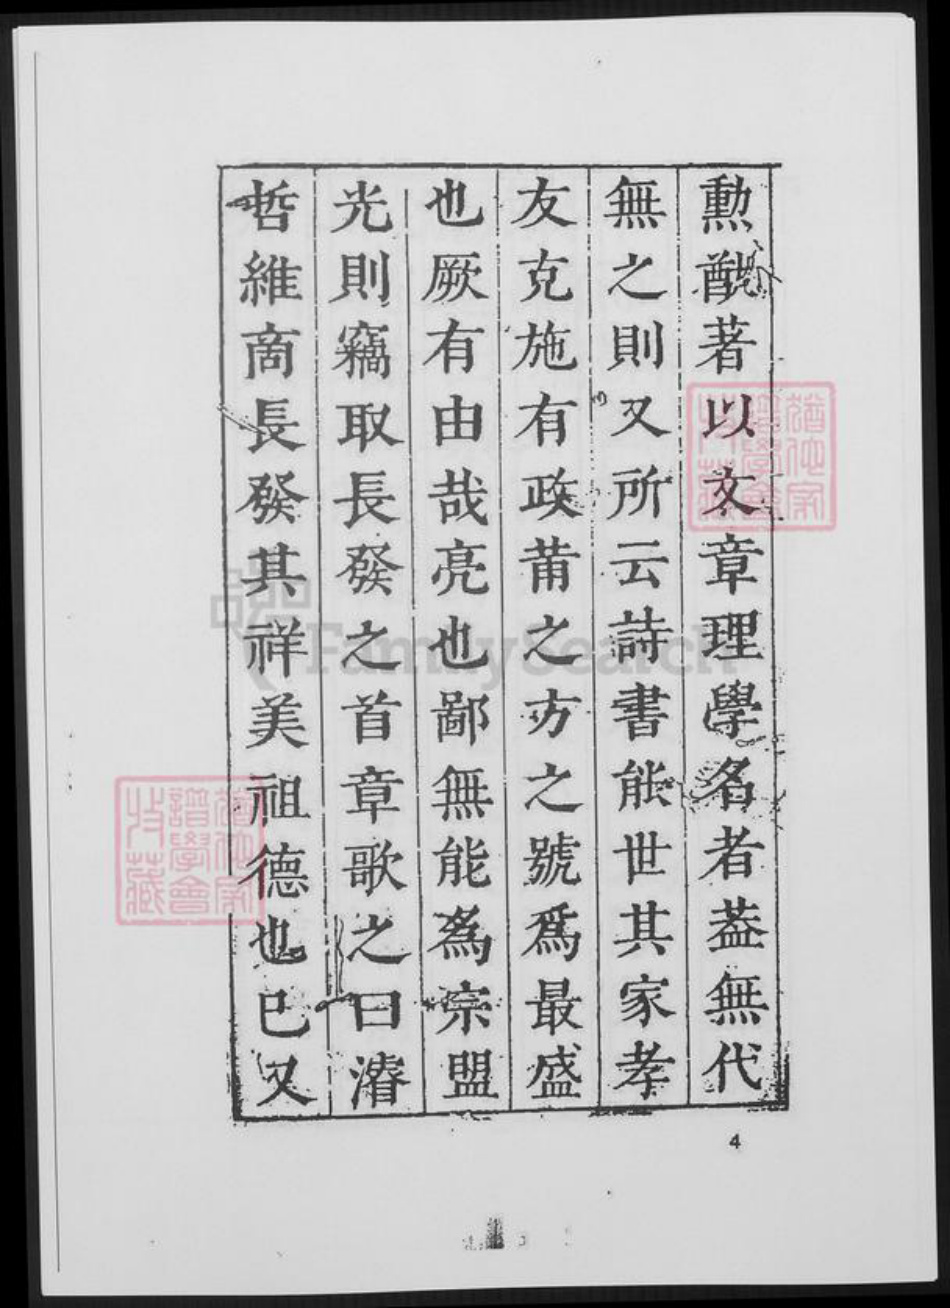 勲猷著以文章理學名者葢無代
無之則又所云詩書能世其家孝
友克施有政莆之方之號爲最盛
也厥有由哉亮也鄙無能為宗盟
光則竊取長發之首章歌之曰濬
哲維商長發其祥美祖德也已又
4
FamilySearch